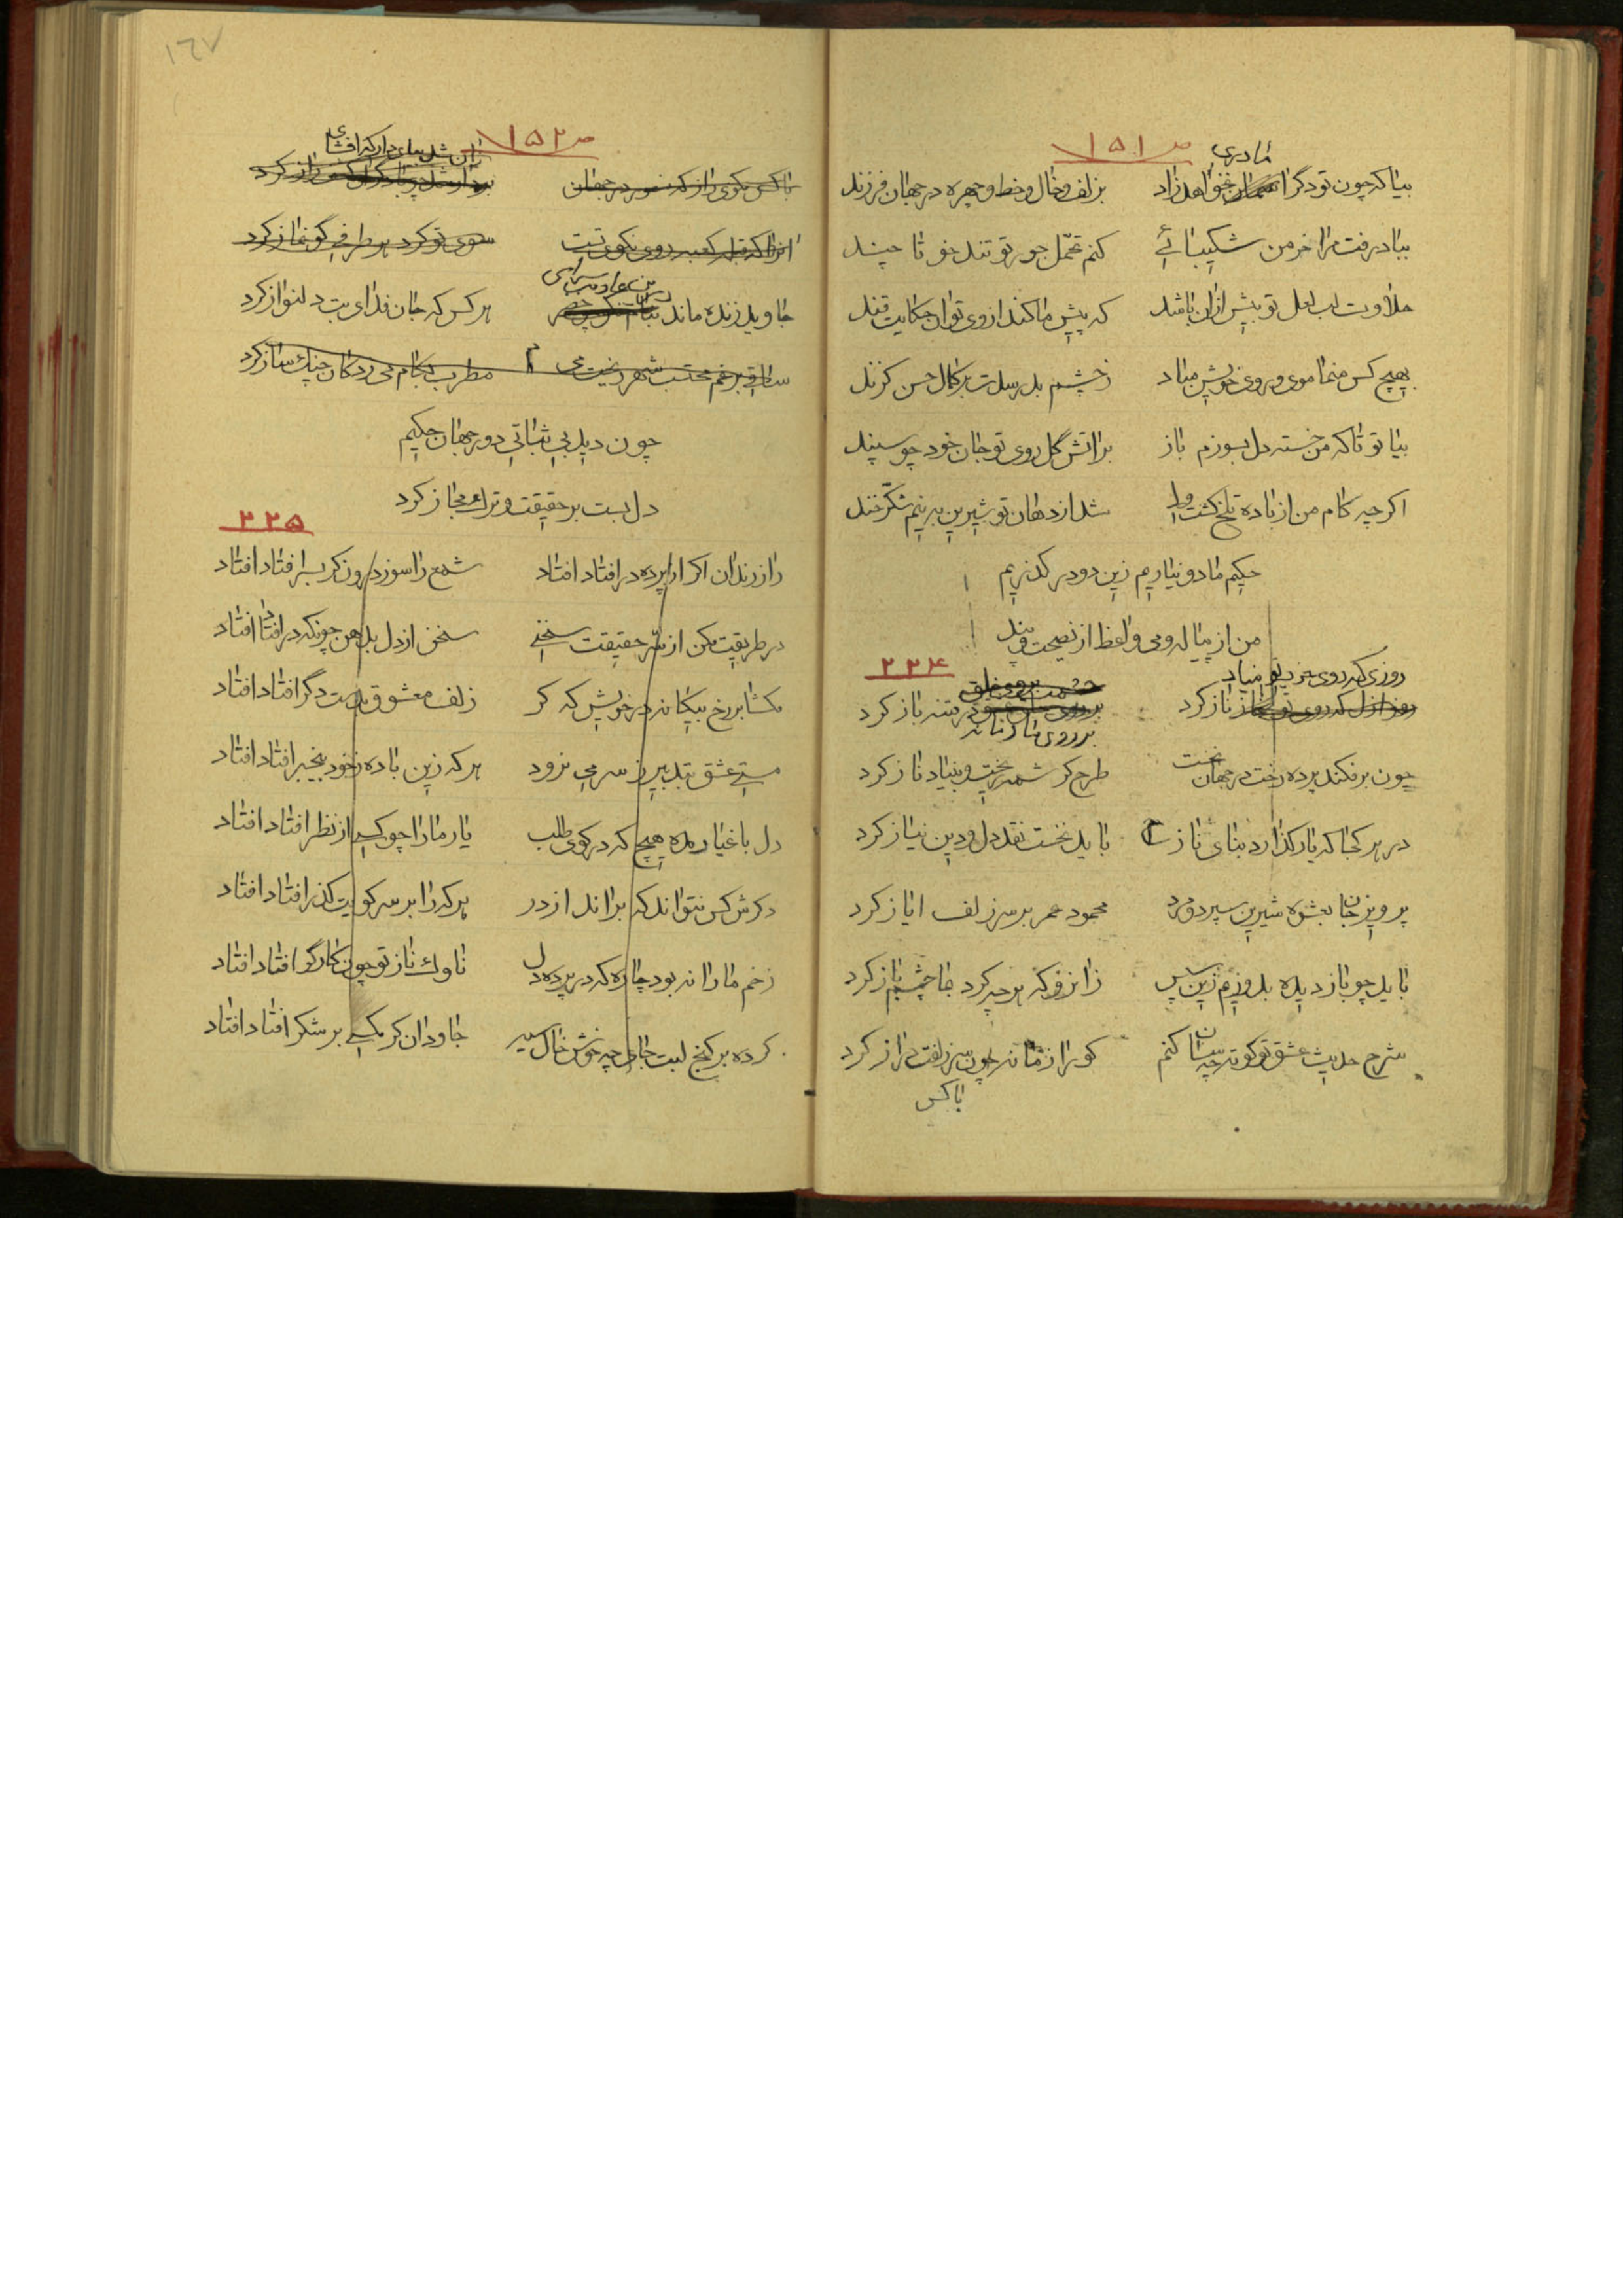 ص ۱۵۱
مادری
بیا که چون تو دگر نخواهد زاد بزلف و خال و خط و چهره در جهان فرزند
بباد رفت مرا خرمن شکیبائی کنم تحمّل جور تو تند خو تا چند
حلاوت لب لعل تو بیش ازان باشد که پیش ما کند از وی توان حکایت قند
بهیچ کس منما موی و روی خویش مباد ز چشم بد رسدت بر کمال حسن گزند
بیا تو تا که من خسته دل بسوزم باز بر اتش گل روی تو جان خود چو سپند
اکرچه کام من از باده تلخ گشت ولی شد از دهان تو شیرین به نیم شکّرخند
حکیم ما دو نیاریم زین دو در گذریم
من از پیاله و می واعظ از نصیحت و پند
۲۲۴
روزی که روی جز بتو مباد
ناز کرد در فتنه باز کرد
بر روی ما زمانه
چون برفکند پرده رخت در جهان نخست طرح کرشمه ریخت و بنیاد ناز کرد
در هر کجا که یار گذارد بنای ناز باید نخست نقد دل و دین نیاز کرد
پرویز جان بعشوه شیرین سپرد و مرد محمود عمر بر سر زلف ایاز کرد
باید چو باز دیده بدوزیم زین سپس زانرو که هرچه کرد بما چشم باز کرد
شرح حدیث عشق تو کوته چسان کنم کو را زمانه چون سر زلفت دراز کرد
باکس
۱۶۷
ص ۱۵۲
باکس مگوی راز که در جهان
انرا که قبله کعبه روی نکوی تست سوی تو کرد هر طرفی کو نماز کرد
جاوید زنده ماند هر کس که جان فدای بت دلنواز کرد
ساقی برغم محتسب شهر ریخت می مطرب بکام می زدگان چنگ ساز کرد
چون دید بی ثباتی دور جهان حکیم
دل بست بر حقیقت و ترک مجاز کرد
۲۲۵
راز رندان اکر از پرده در افتاد افتاد شمع را سوز درون کر بسر افتاد افتاد
در طریقت مکن از سرّ حقیقت سخنی سخن از دل بدهن چونکه در افتاد افتاد
مکشا بر رخ بیگانه در خویش که گر زلف معشوق بدست دگر افتاد افتاد
مستی عشق بتدبیر ز سر می نرود هر که زین باده ز خود بیخبر افتاد افتاد
دل باغیار مده هیچ که در کوی طلب یار ما را چو کسی از نظر افتاد افتاد
دکرش کس نتواند که براند از در هر که را بر سر کویت گذر افتاد افتاد
زخم ما را نه بود چاره که در پرده دل ناوک ناز تو چون کارگر افتاد افتاد
کرده بر کنج لبت جای چه خوش خال سیه جاودان کر مگسی بر شکر افتاد افتاد